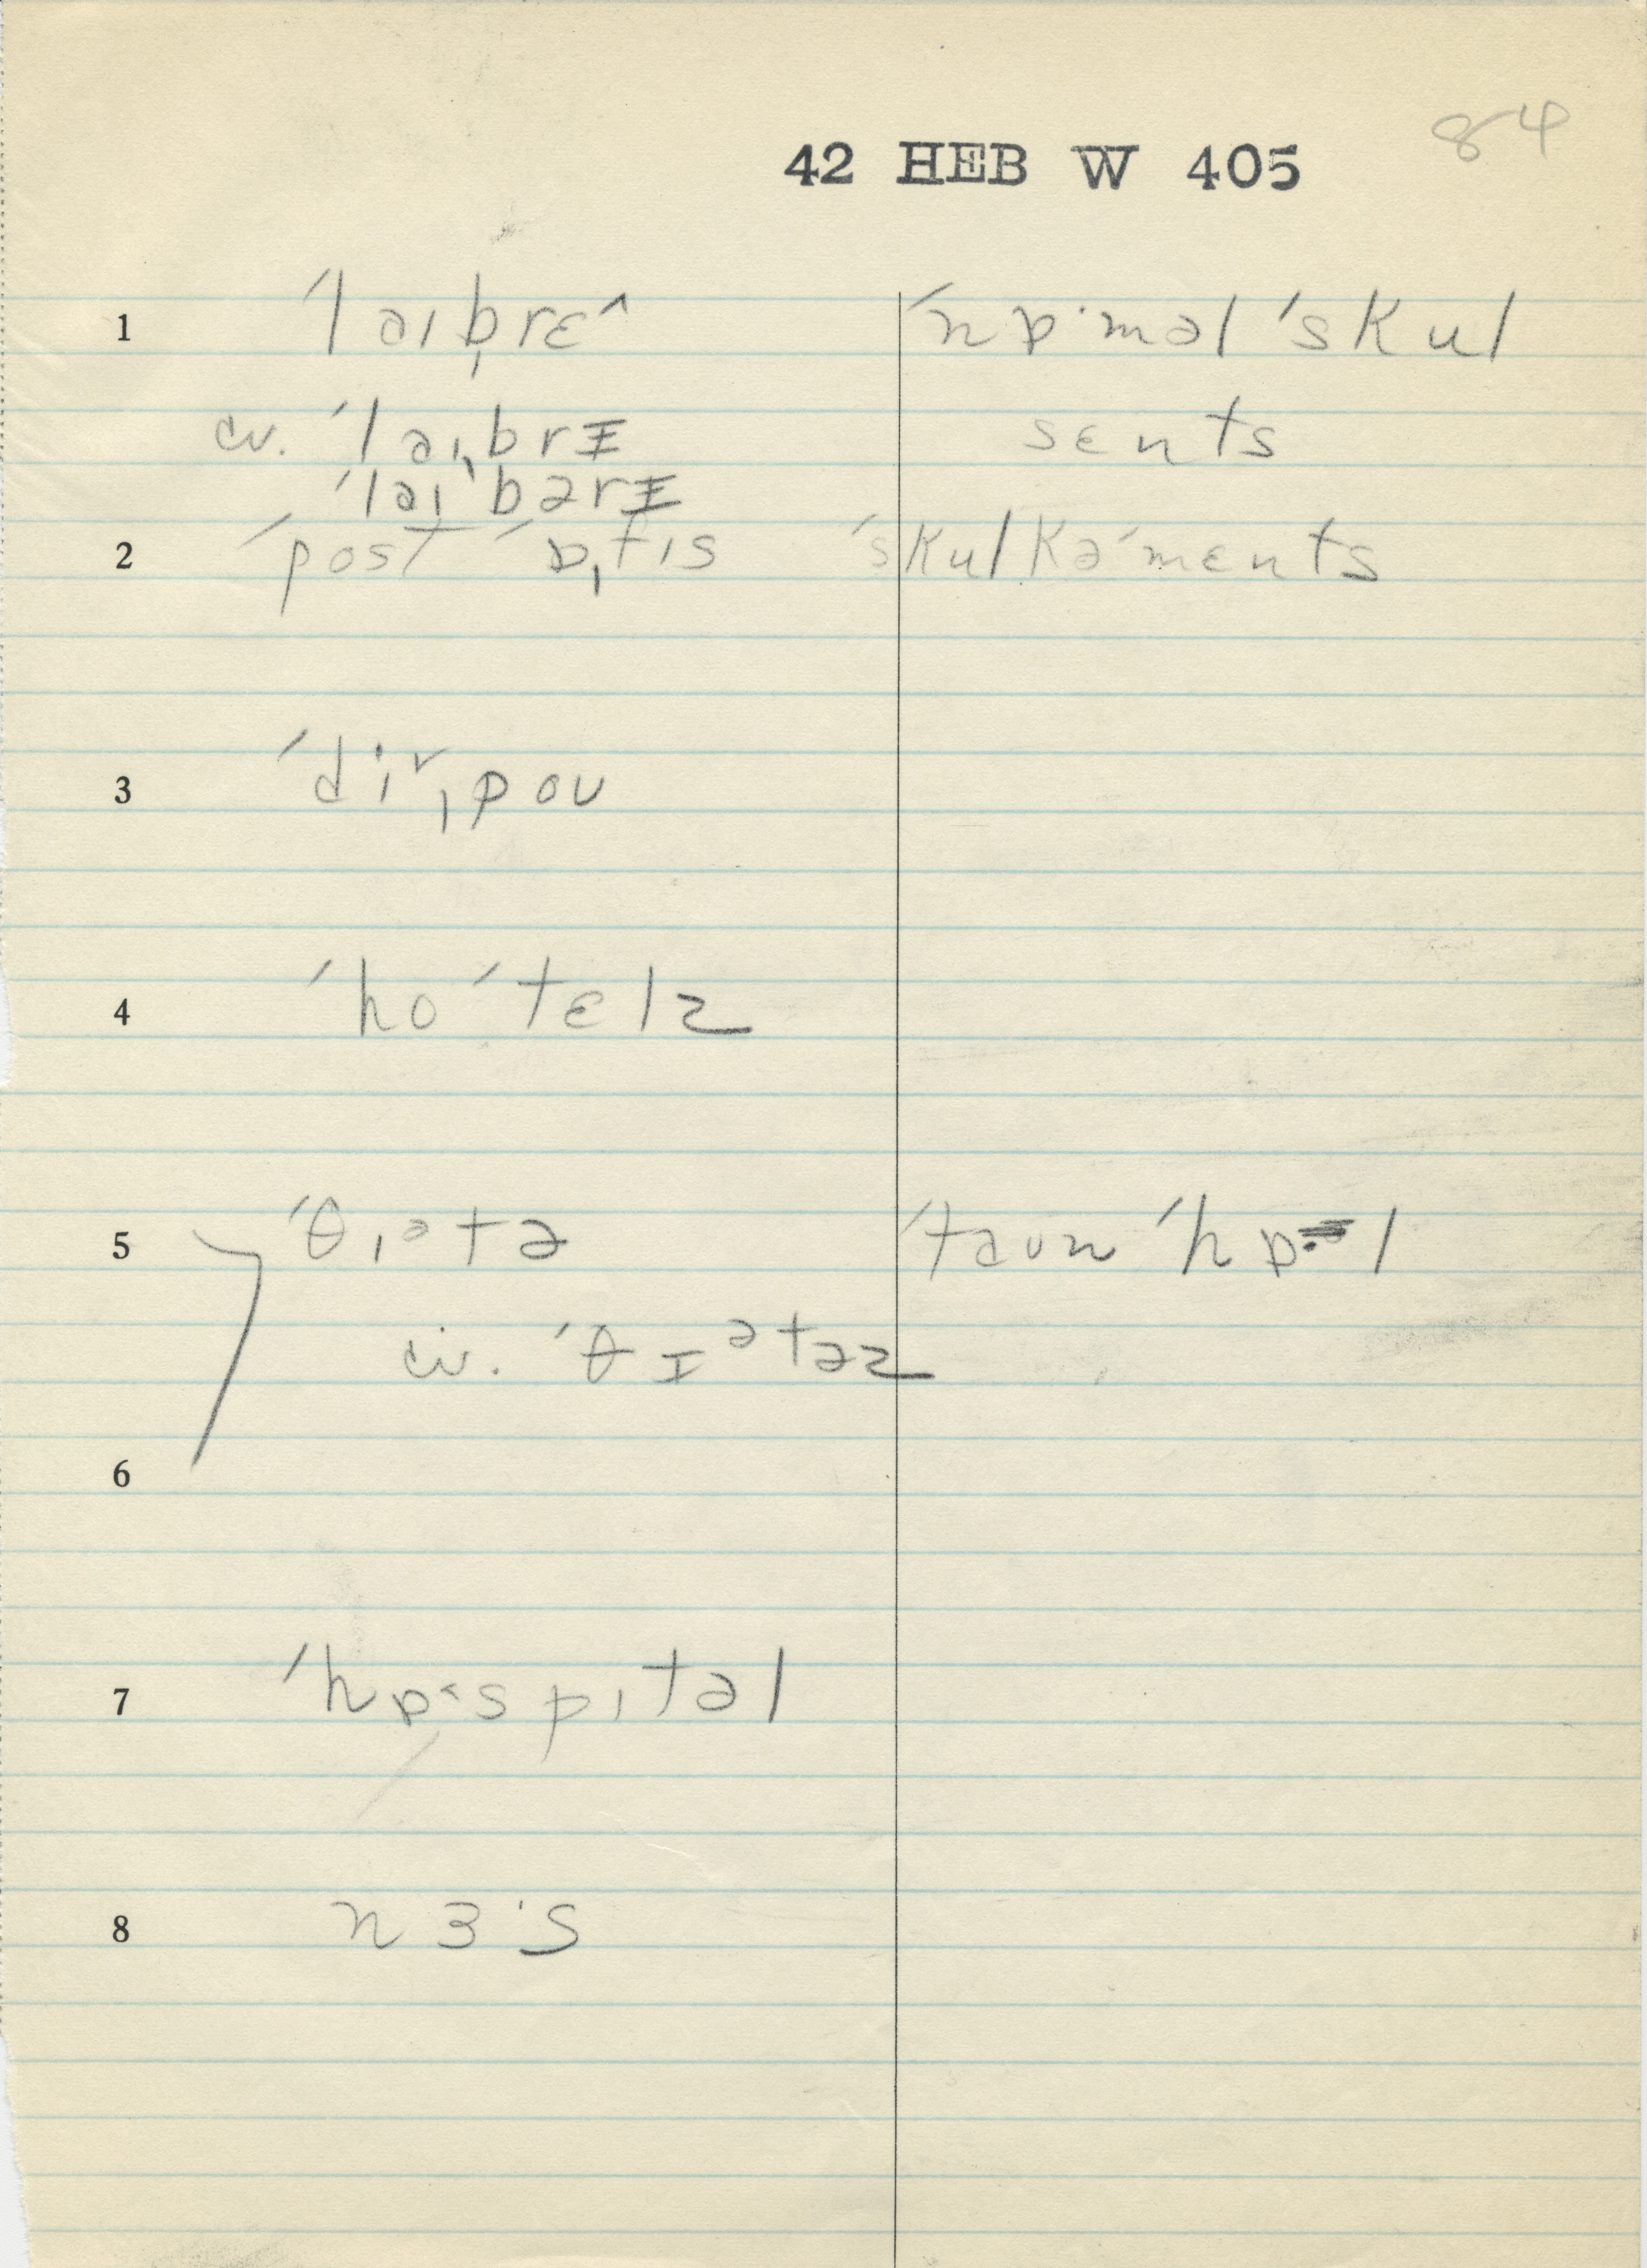 84
42 HEB W 405
1 ˈlaɪˌbrɛ^ ˈnɒ·məl ˈskul
cv. ˈlaɪˌbrɪ sɛnts
ˈlaɪˌbərɪ
2 ˈpost ˈɒˌfɪs ˈskulkəˈmɛnts
3 ˈdi˅ˌpoʊ
4 ˈhoˈtɛlz
5 ˈθɪᵊtə ˈtaʊn ˈhɒ·l
cv. ˈθɪᵊtəz
6
7 ˈhɒ˂spɪtəl
8 nɜ·s